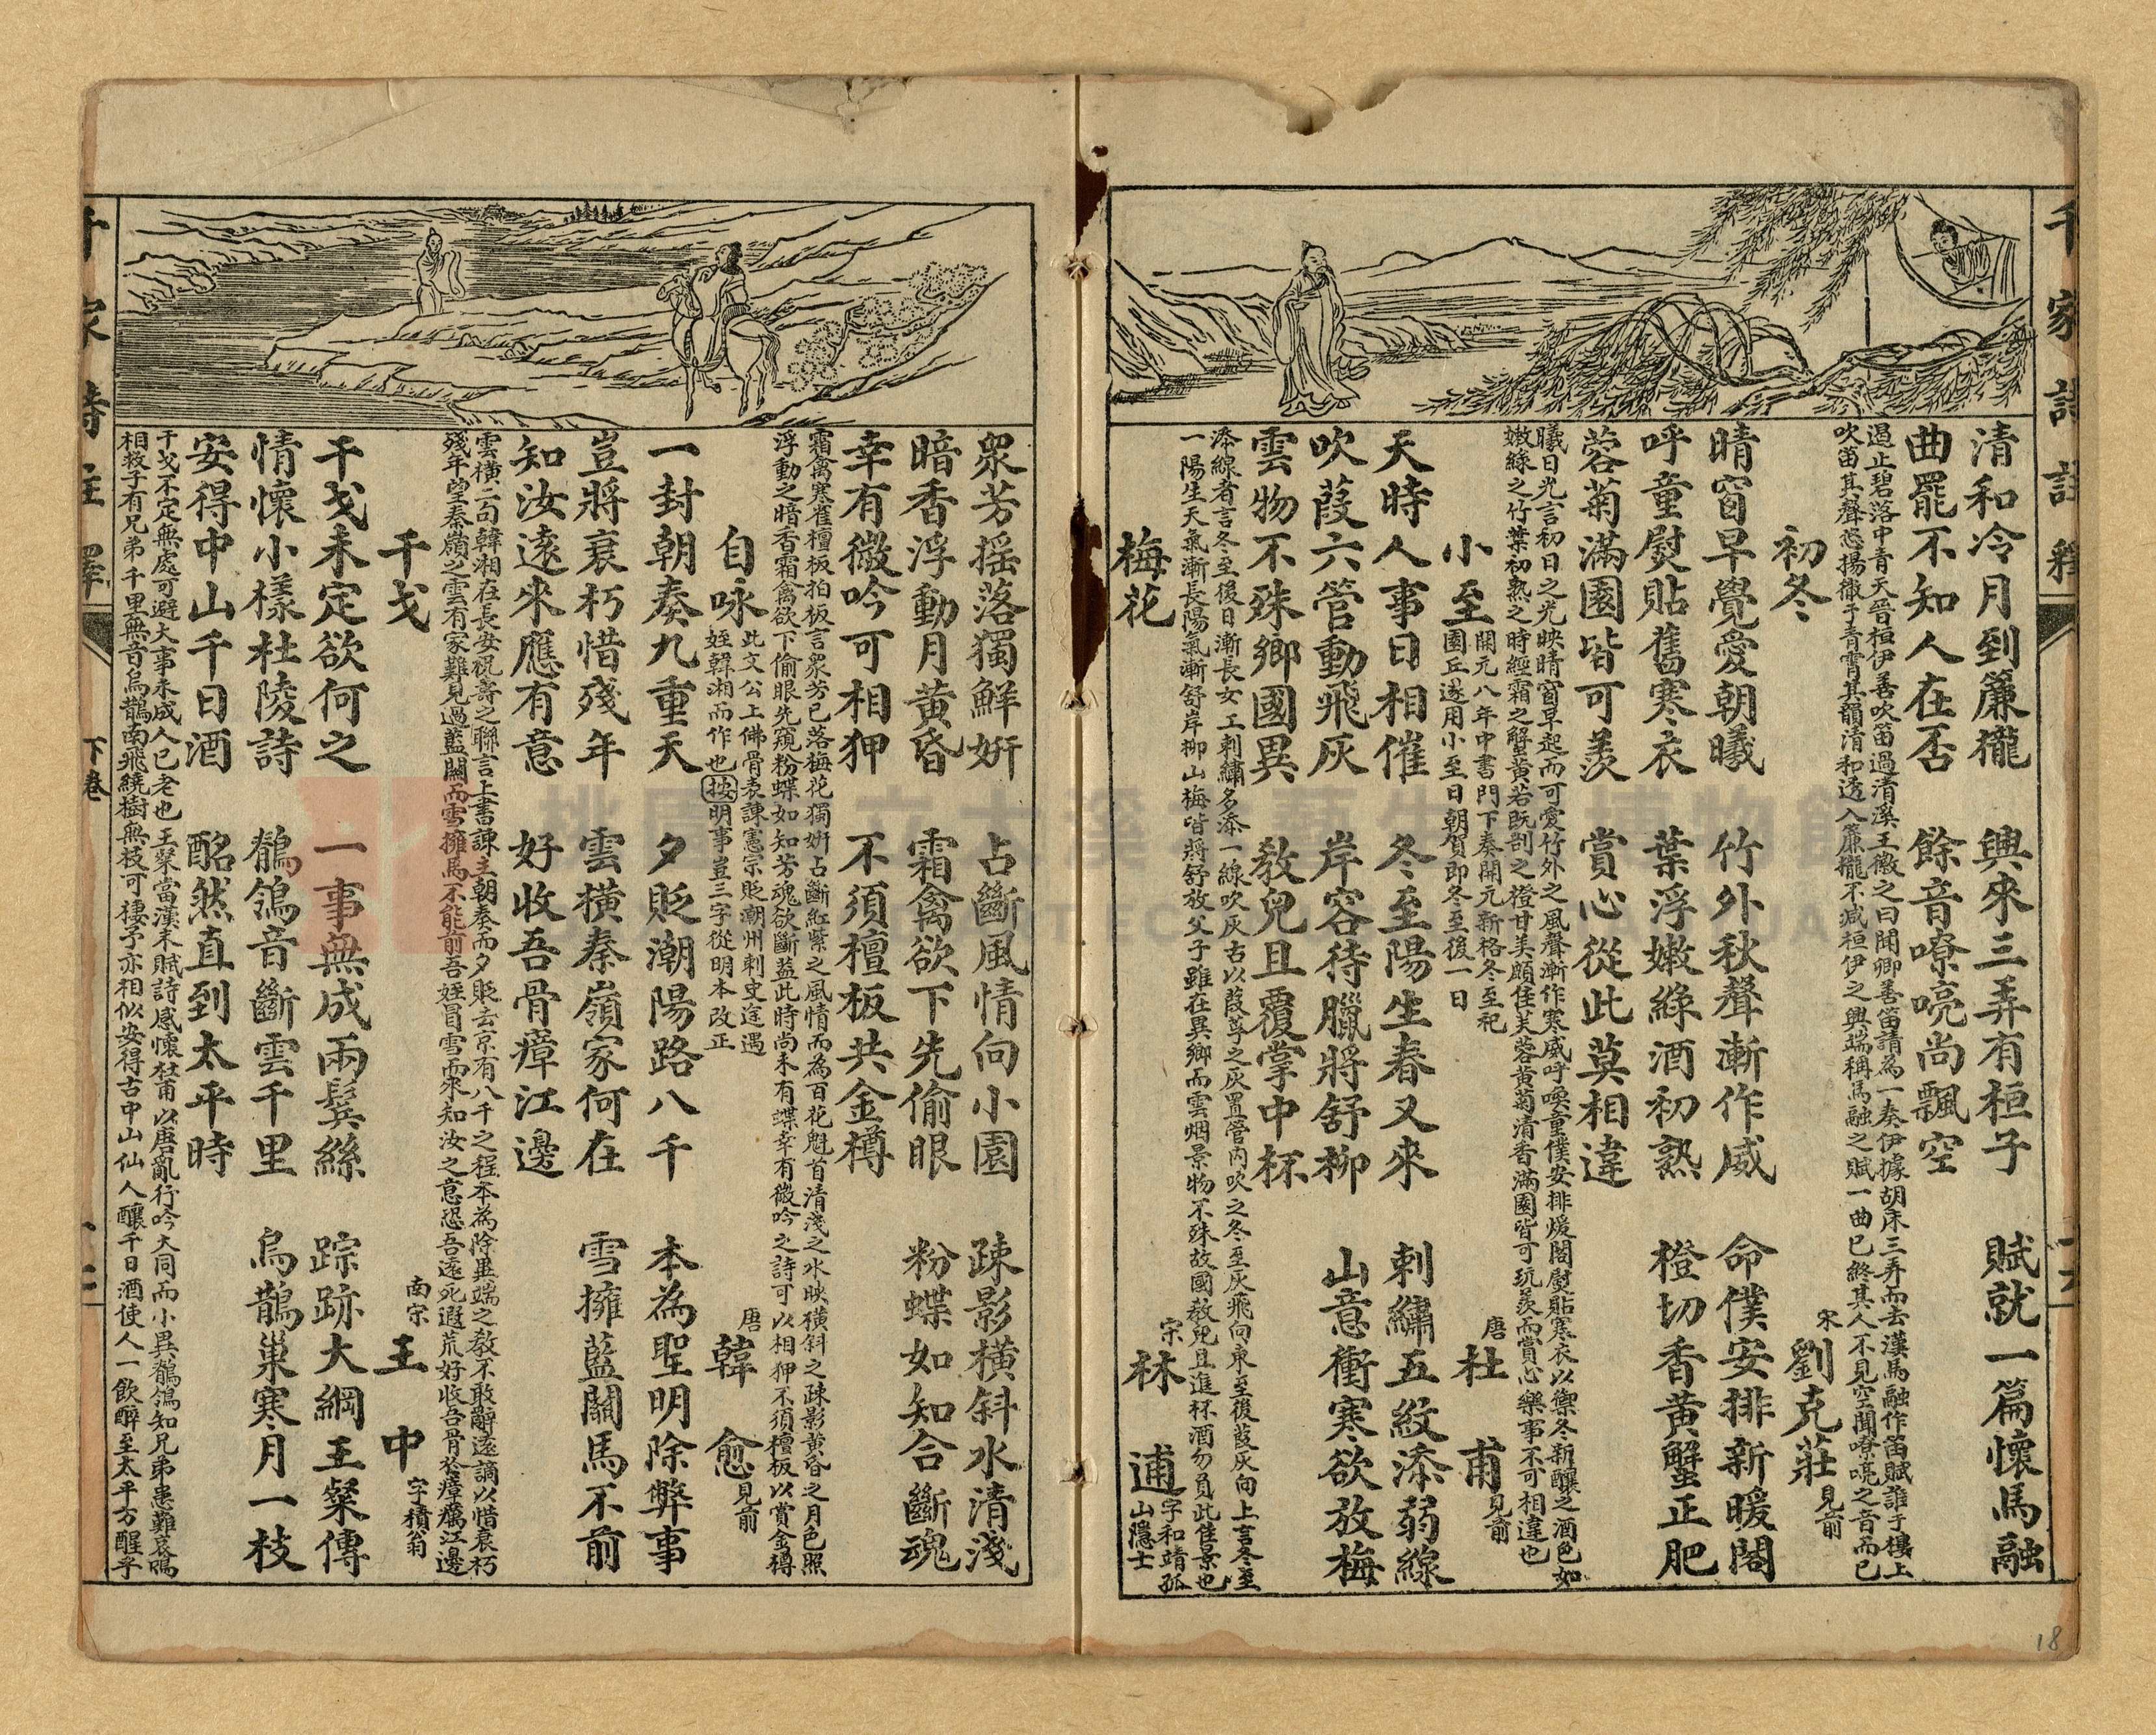 千家詩註釋
清和冷月到簾櫳 興來三弄有桓子 賦就一篇懷馬融
曲罷不知人在否 餘音嘹喨尚飄空
過止碧落中青天晉桓伊善吹笛過清溪王徽之曰聞卿善笛請為一奏伊據胡床三弄而去漢馬融作笛賦誰于樓上
吹笛其聲悠揚徹于青霄其韻清和透入簾櫳不減桓伊之興端稱馬融之賦一曲已終其人不見空聞嘹喨之音而已
初冬 宋 劉克莊 見前
晴窗早覺愛朝曦 竹外秋聲漸作威 命僕安排新暖閣
呼童熨貼舊寒衣 葉浮嫩綠酒初熟 橙切香黃蟹正肥
蓉菊滿園皆可羨 賞心從此莫相違
曦日光言初日之光映晴窗早起而可愛竹外之風聲漸作寒威呼喚童僕安排煖閣熨貼寒衣以禦冬新釀之酒色如
嫩綠之竹葉初熟之時經霜之蟹黃若既剖之橙甘美頗佳芙蓉黃菊清香滿園皆可玩羨而賞心樂事不可相違也
小至 開元八年中書門下奏開元新格冬至祀
圜丘遂用小至日朝賀即冬至後一日 唐 杜甫 見前
天時人事日相催 冬至陽生春又來 刺繡五紋添弱線
吹葭六管動飛灰 岸容待臘將舒柳 山意衝寒欲放梅
雲物不殊鄉國異 教兒且覆掌中杯
添線者言冬至後日漸長女工刺繡名添一線吹灰古以葭莩之灰置管內吹之冬至灰飛向東至後葭灰向上言冬至
一陽生天氣漸長陽氣漸舒岸柳山梅皆將舒放父子雖在異鄉而雲烟景物不殊故國教兒且進杯酒勿負此佳景也
梅花 宋 林逋 字和靖孤
山隱士
眾芳搖落獨鮮妍 占斷風情向小園 疎影橫斜水清淺
暗香浮動月黃昏 霜禽欲下先偷眼 粉蝶如知合斷魂
幸有微吟可相狎 不須檀板共金樽
霜禽寒雀檀板拍板言眾芳已落梅花獨妍占斷紅紫之風情而為百花魁首清淺之水映橫斜之疎影黃昏之月色照
浮動之暗香霜禽欲下偷眼先窺粉蝶如知芳魂欲斷葢此時尚未有蝶幸有微吟之詩可以相狎不須檀板以賞金樽
自咏 此文公上佛骨表諫憲宗貶潮州刺史途遇
姪韓湘而作也按明事豈三字從明本改正 唐 韓愈 見前
一封朝奏九重天 夕貶潮陽路八千 本為聖明除弊事
豈將衰朽惜殘年 雲橫秦嶺家何在 雪擁藍關馬不前
知汝遠來應有意 好收吾骨瘴江邊
雲橫二句韓湘在長安祝壽之聯言上書諫主朝奏而夕貶去京有八千之程本為除異端之教不敢辭遠謫以惜衰朽
殘年望秦嶺之雲有家難見過藍關而雪擁馬不能前吾姪冒雪而來知汝之意恐吾遠死遐荒好收吾骨於瘴癘江邊
干戈 南宋 王中 字積翁
干戈未定欲何之 一事無成兩鬢絲 踪跡大綱王粲傳
情懷小樣杜陵詩 鶺鴒音斷雲千里 烏鵲巢寒月一枝
安得中山千日酒 酩然直到太平時
干戈不定無處可避大事未成人已老也王粲當漢末賦詩感懷杜甫以唐亂行吟大同而小異鶺鴒知兄弟患難哀鳴
相救子有兄弟千里無音烏鵲南飛繞樹無枝可棲予亦相似安得古中山仙人釀千日酒使人一飲醉至太平方醒乎
千家詩註釋 下卷
18